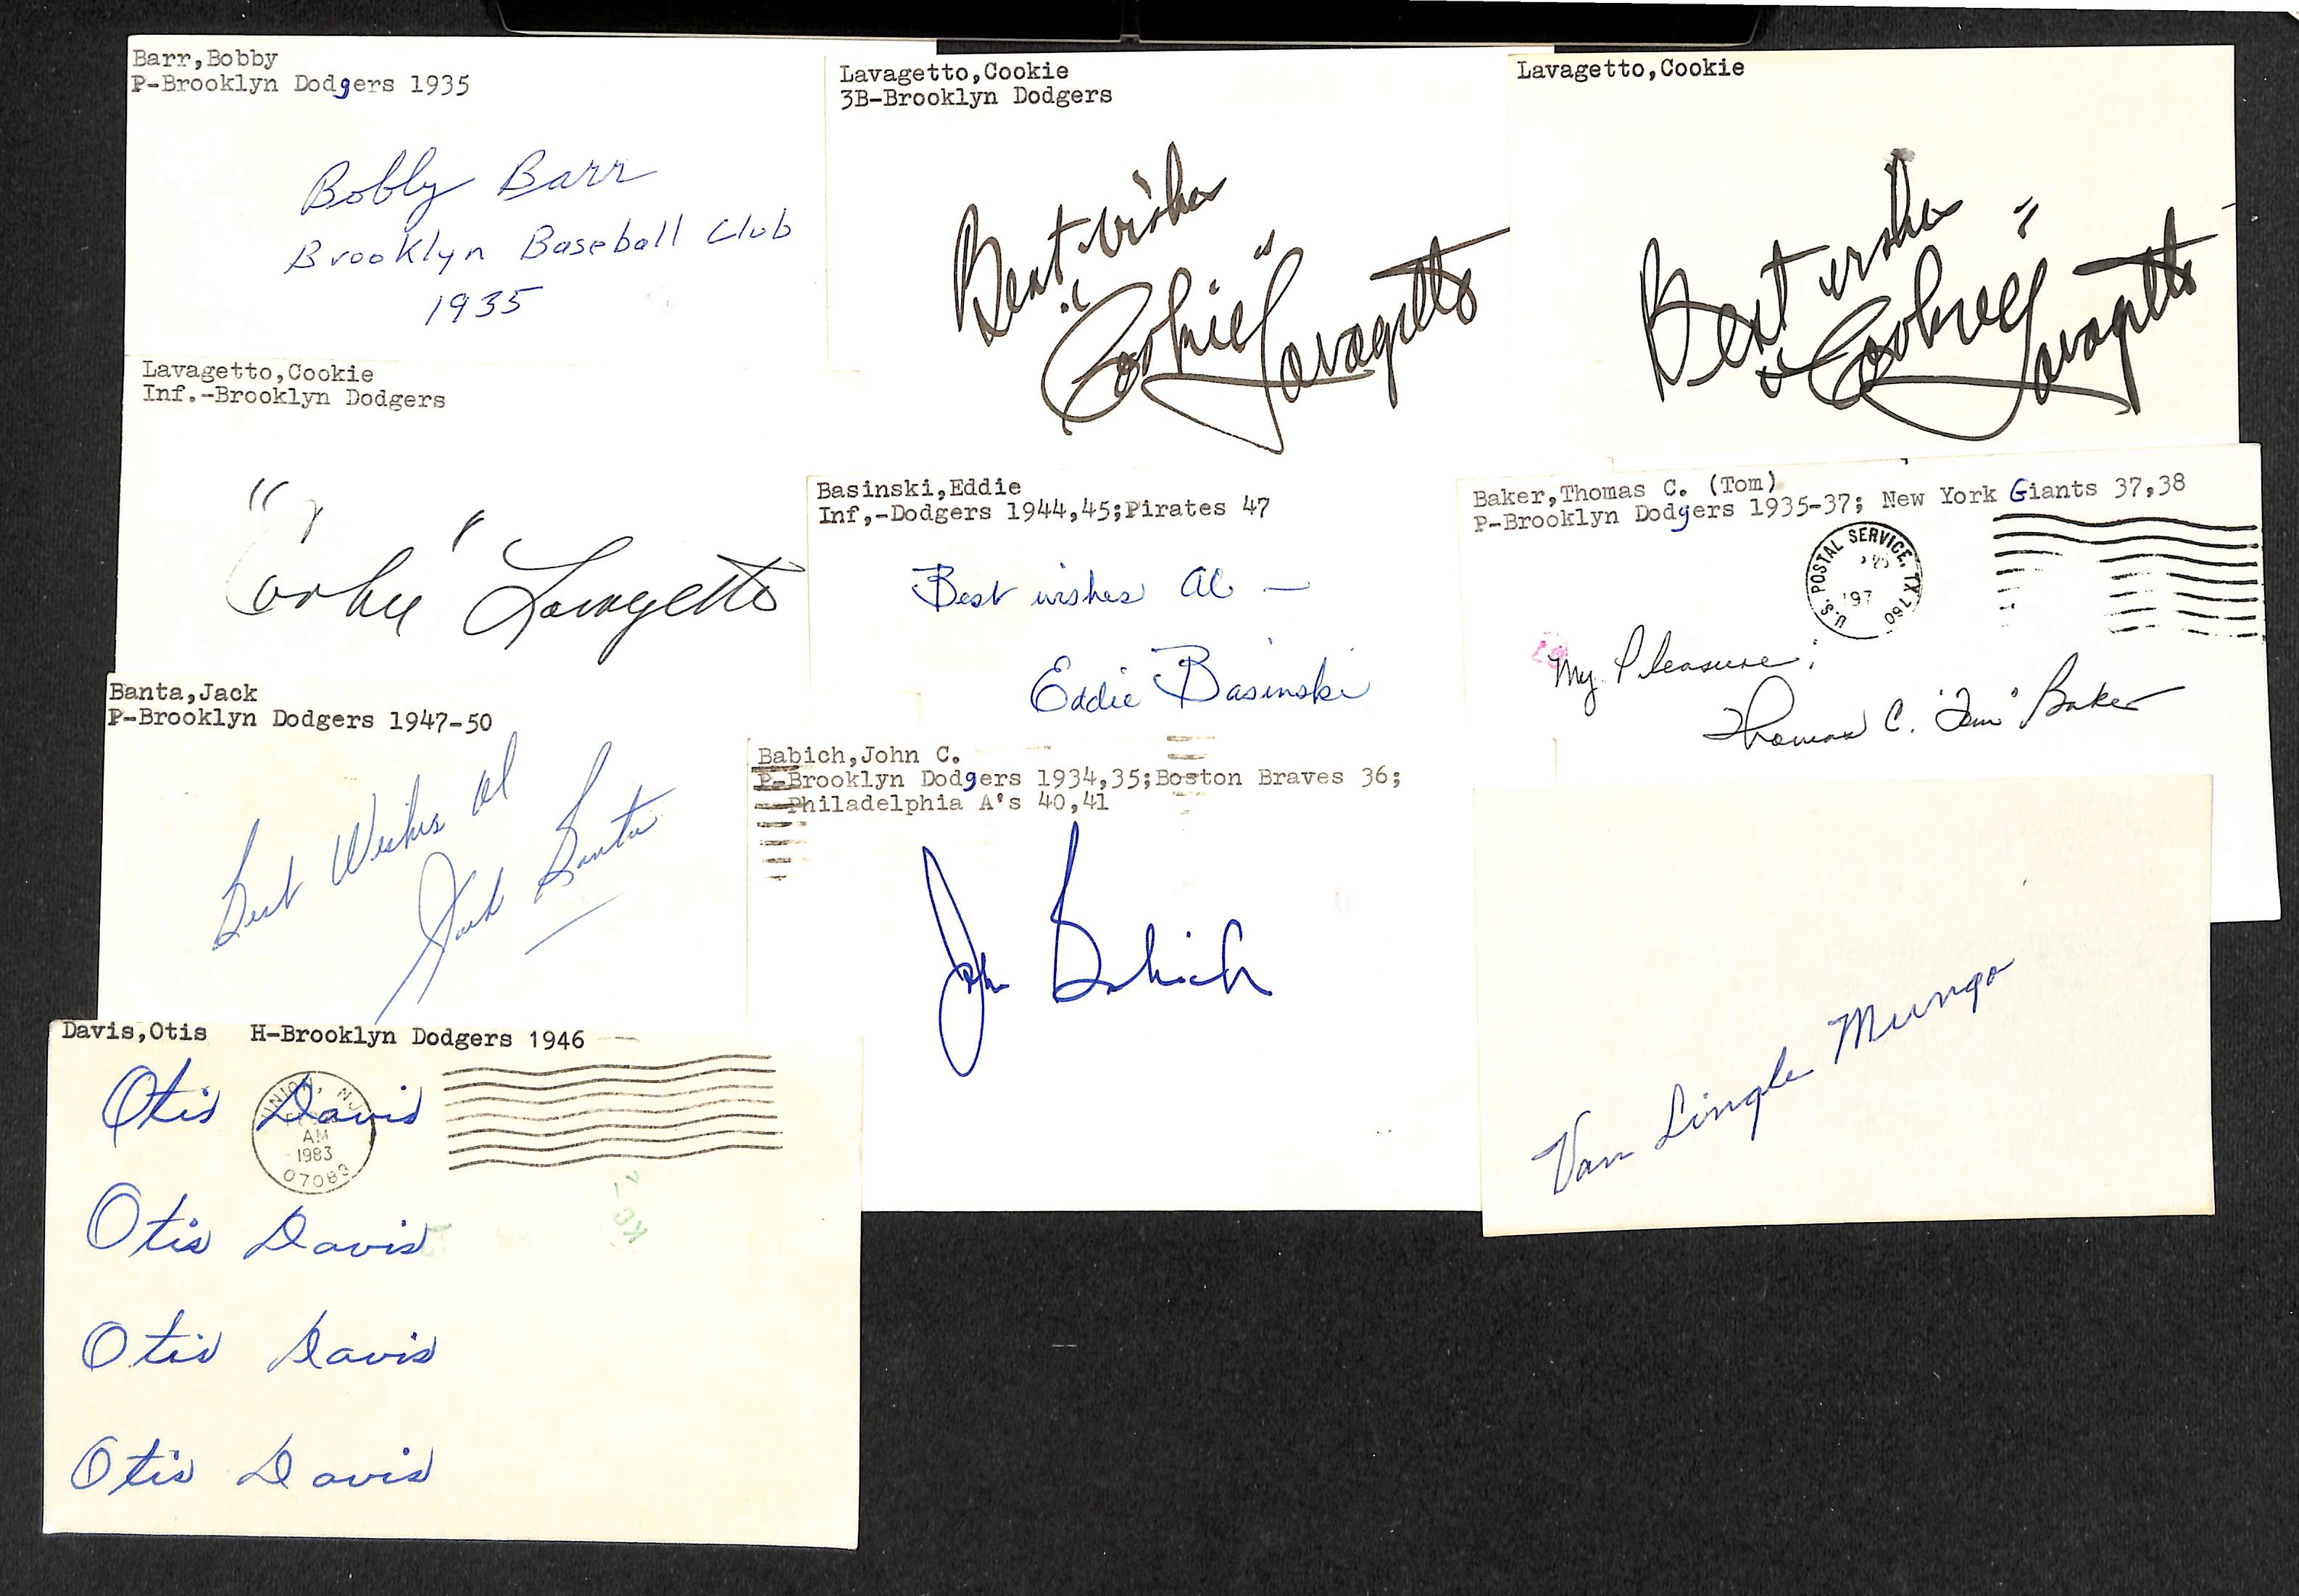 Barr,Bobby
P-Brooklyn Dodgers 1935
Bobby Barr
Brooklyn Baseball Club
1935
Lavagetto,Cookie
3B-Brooklyn Dodgers
Best wishes
"Cookie" Lavagetto
Lavagetto,Cookie
Best wishes
"Cookie" Lavagetto
Lavagetto,Cookie
Inf.-Brooklyn Dodgers
"Cookie" Lavagetto
Basinski,Eddie
Inf,-Dodgers 1944,45;Pirates 47
Best wishes Al —
Eddie Basinski
Baker,Thomas C. (Tom)
P-Brooklyn Dodgers 1935-37; New York Giants 37,38
U.S. POSTAL SERVICE, TX 760
197
My Pleasure;
Thomas C. "Tom" Baker
Banta,Jack
P-Brooklyn Dodgers 1947-50
Best Wishes Al
Jack Banta
Babich,John C.
P-Brooklyn Dodgers 1934,35;Boston Braves 36;
Philadelphia A's 40,41
John Babich
Van Lingle Mungo
Davis,Otis H-Brooklyn Dodgers 1946
Otis Davis
UNION, NJ
AM
1983
07083
Otis Davis
Otis Davis
Otis Davis